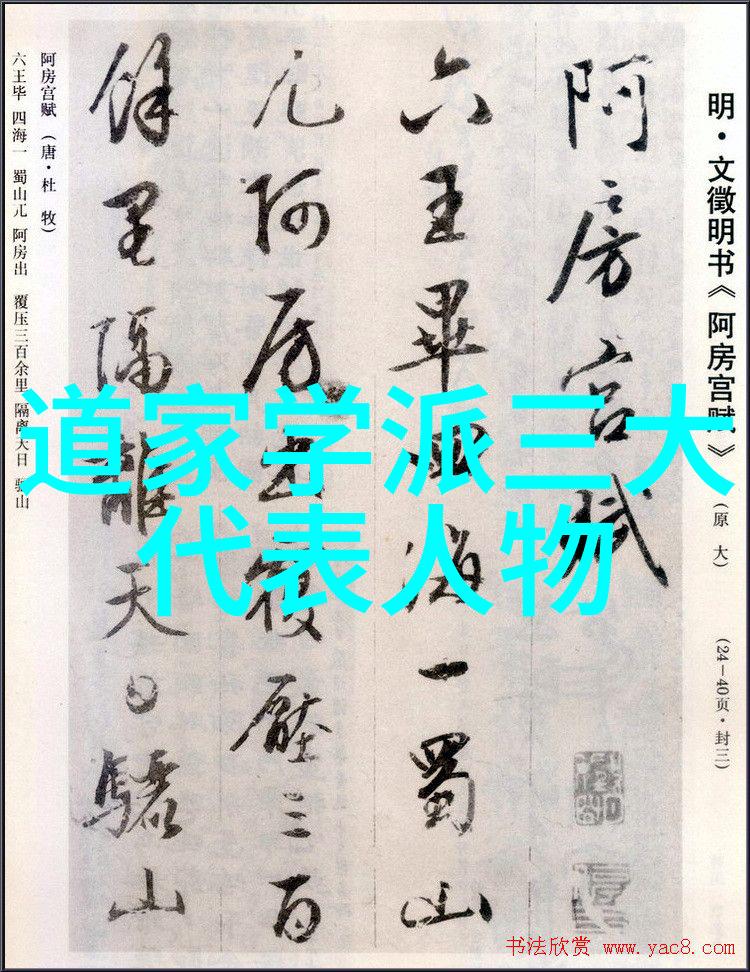 道家学派三大
代表人物
明·文徵明书《阿房宫赋》(原 大) (24—40页·封三)
阿房宫赋
六王畢四海一蜀山
兀阿房出覆壓三百
餘里隔離天日驪山
阿房宫赋 (唐·杜 牧)
六王毕 四海一 蜀山兀 阿房出 覆压三百余里 隔离天日 骊山
书法欣赏 www.yac8.com